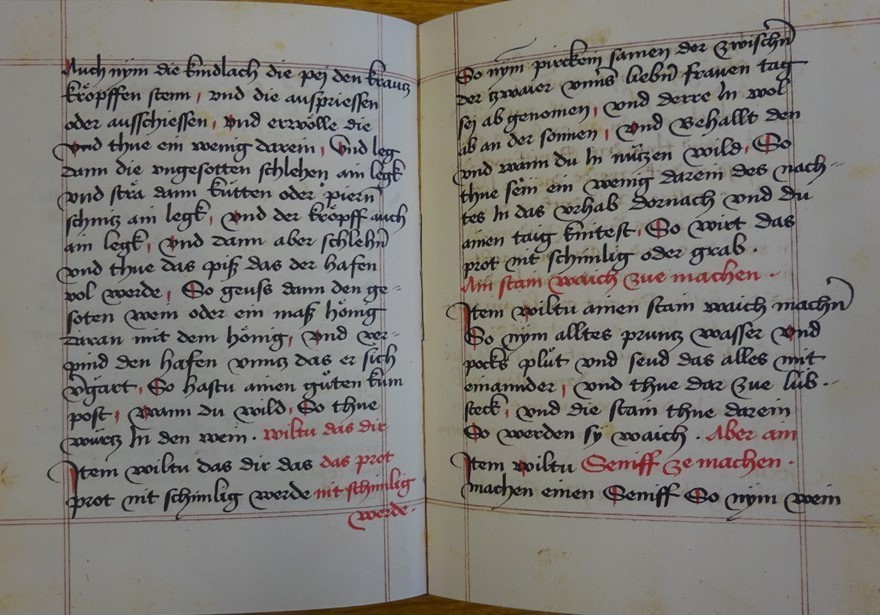 Auch nym die kindlach die pej den krautz
kropffen stenn, vnd die auspriessen
oder ausschiessen, vnd erwolle die
vnd thue ein wenig darein, Vnd leg
dann die vngesotten schlehen ain legk
vnd strä dann kütten oder piern
schnitz ain legk, vnd der kröpff auch
ain legk, vnd dann aber schlehn
vnd thue das piß das der hafen
vol werde, So geuss dann den ge-
soten wein oder ein maß hönig
daran mit dem hönig, vnd ver-
pind den hafen vnntz das er sich
v̈gärt, So hastu ainen gúten kum
post, wann du wild, So thue
würtz In den wein. wiltu das dir
Item wiltu das dir das das prot
prot nit schimlig werde nit schimlig
werde.
So nÿm pirckein samen der zwischn̄
der zwaier vnns liebn̄ frauen tag
sej ab genomen, vnd derre In wol
ab an der sonnen, vnd Behallt den
vnd wann du In nützen wild, So
thue sein ein wenig darein des nach-
tes In das vrhab dornach vnd du
ainen taig knitest, So wirt das
prot nit schimlig oder grab.
Ain stain waich zue machen.
Item wiltu ainen stain waich machn̄
So nym alltes pruntz wasser vnd
pocks plüt vnd seud das alles mit
einannder, vnd thue dar zue lüb-
steck, vnd die stain thue darein
So werden sÿ waich. Aber ain
Item wiltu Seniff ze machen.
machen einen Seniff So nÿm wein